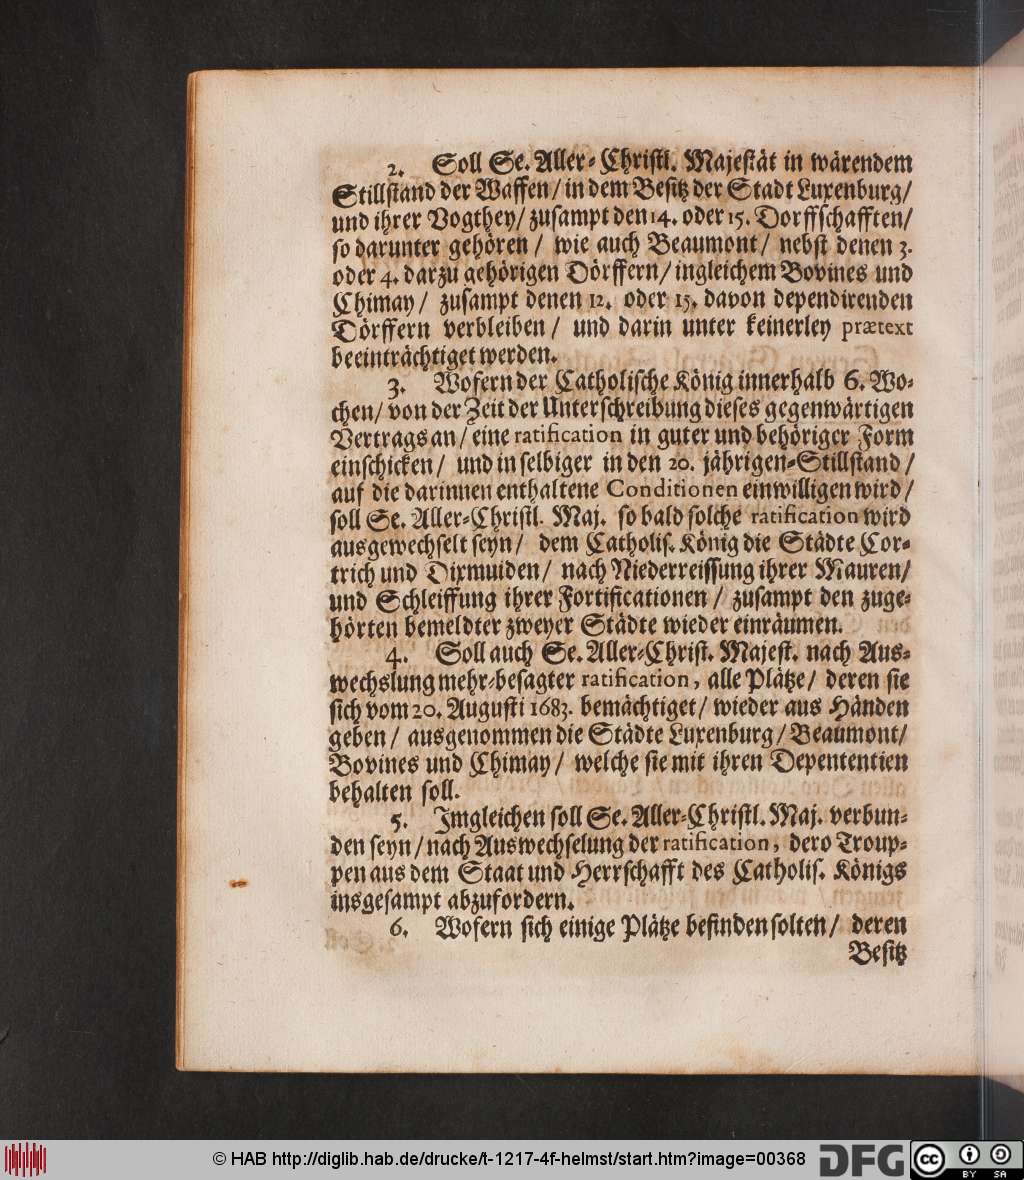 2. Soll Se. Aller-Christl. Majestät in wärendem
Stillstand der Waffen/ in dem Besitz der Stadt Luxenburg/
und ihrer Vogthey/ zusampt den 14. oder 15. Dorffschafften/
so darunter gehören / wie auch Beaumont/ nebst denen 3.
oder 4. darzu gehörigen Dörffern/ ingleichem Bovines und
Chimay/ zusampt denen 12. oder 15. davon dependirenden
Dörffern verbleiben/ und darin unter keinerley prætext
beeinträchtiget werden.
3. Wofern der Catholische König innerhalb 6. Wo-
chen/ von der Zeit der Unterschreibung dieses gegenwärtigen
Vertrags an/ eine ratification in guter und behöriger Form
einschicken/ und in selbiger in den 20. jährigen-Stillstand/
auf die darinnen enthaltene Conditionen einwilligen wird/
soll Se. Aller-Christl. Maj. so bald solche ratification wird
ausgewechselt seyn/ dem Catholis. König die Städte Cor-
trich und Dixmuiden/ nach Niederreissung ihrer Mauren/
und Schleiffung ihrer Fortificationen / zusampt den zuge-
hörten bemeldter zweyer Städte wieder einräumen.
4. Soll auch Se. Aller-Christ. Majest. nach Aus-
wechslung mehr-besagter ratification, alle Plätze/ deren sie
sich vom 20. Augusti 1683. bemächtiget/ wieder aus Händen
geben/ ausgenommen die Städte Luxenburg/ Beaumont/
Bovines und Chimay/ welche sie mit ihren Depententien
behalten soll.
5. Imgleichen soll Se. Aller-Christl. Maj. verbun-
den seyn/ nach Auswechselung der ratification, dero Troup-
pen aus dem Staat und Herrschafft des Catholis. Königs
insgesampt abzufordern.
6. Wofern sich einige Plätze befinden solten/ deren
Besitz
© HAB http://diglib.hab.de/drucke/t-1217-4f-helmst/start.htm?image=00368
DFG
cc
BY SA